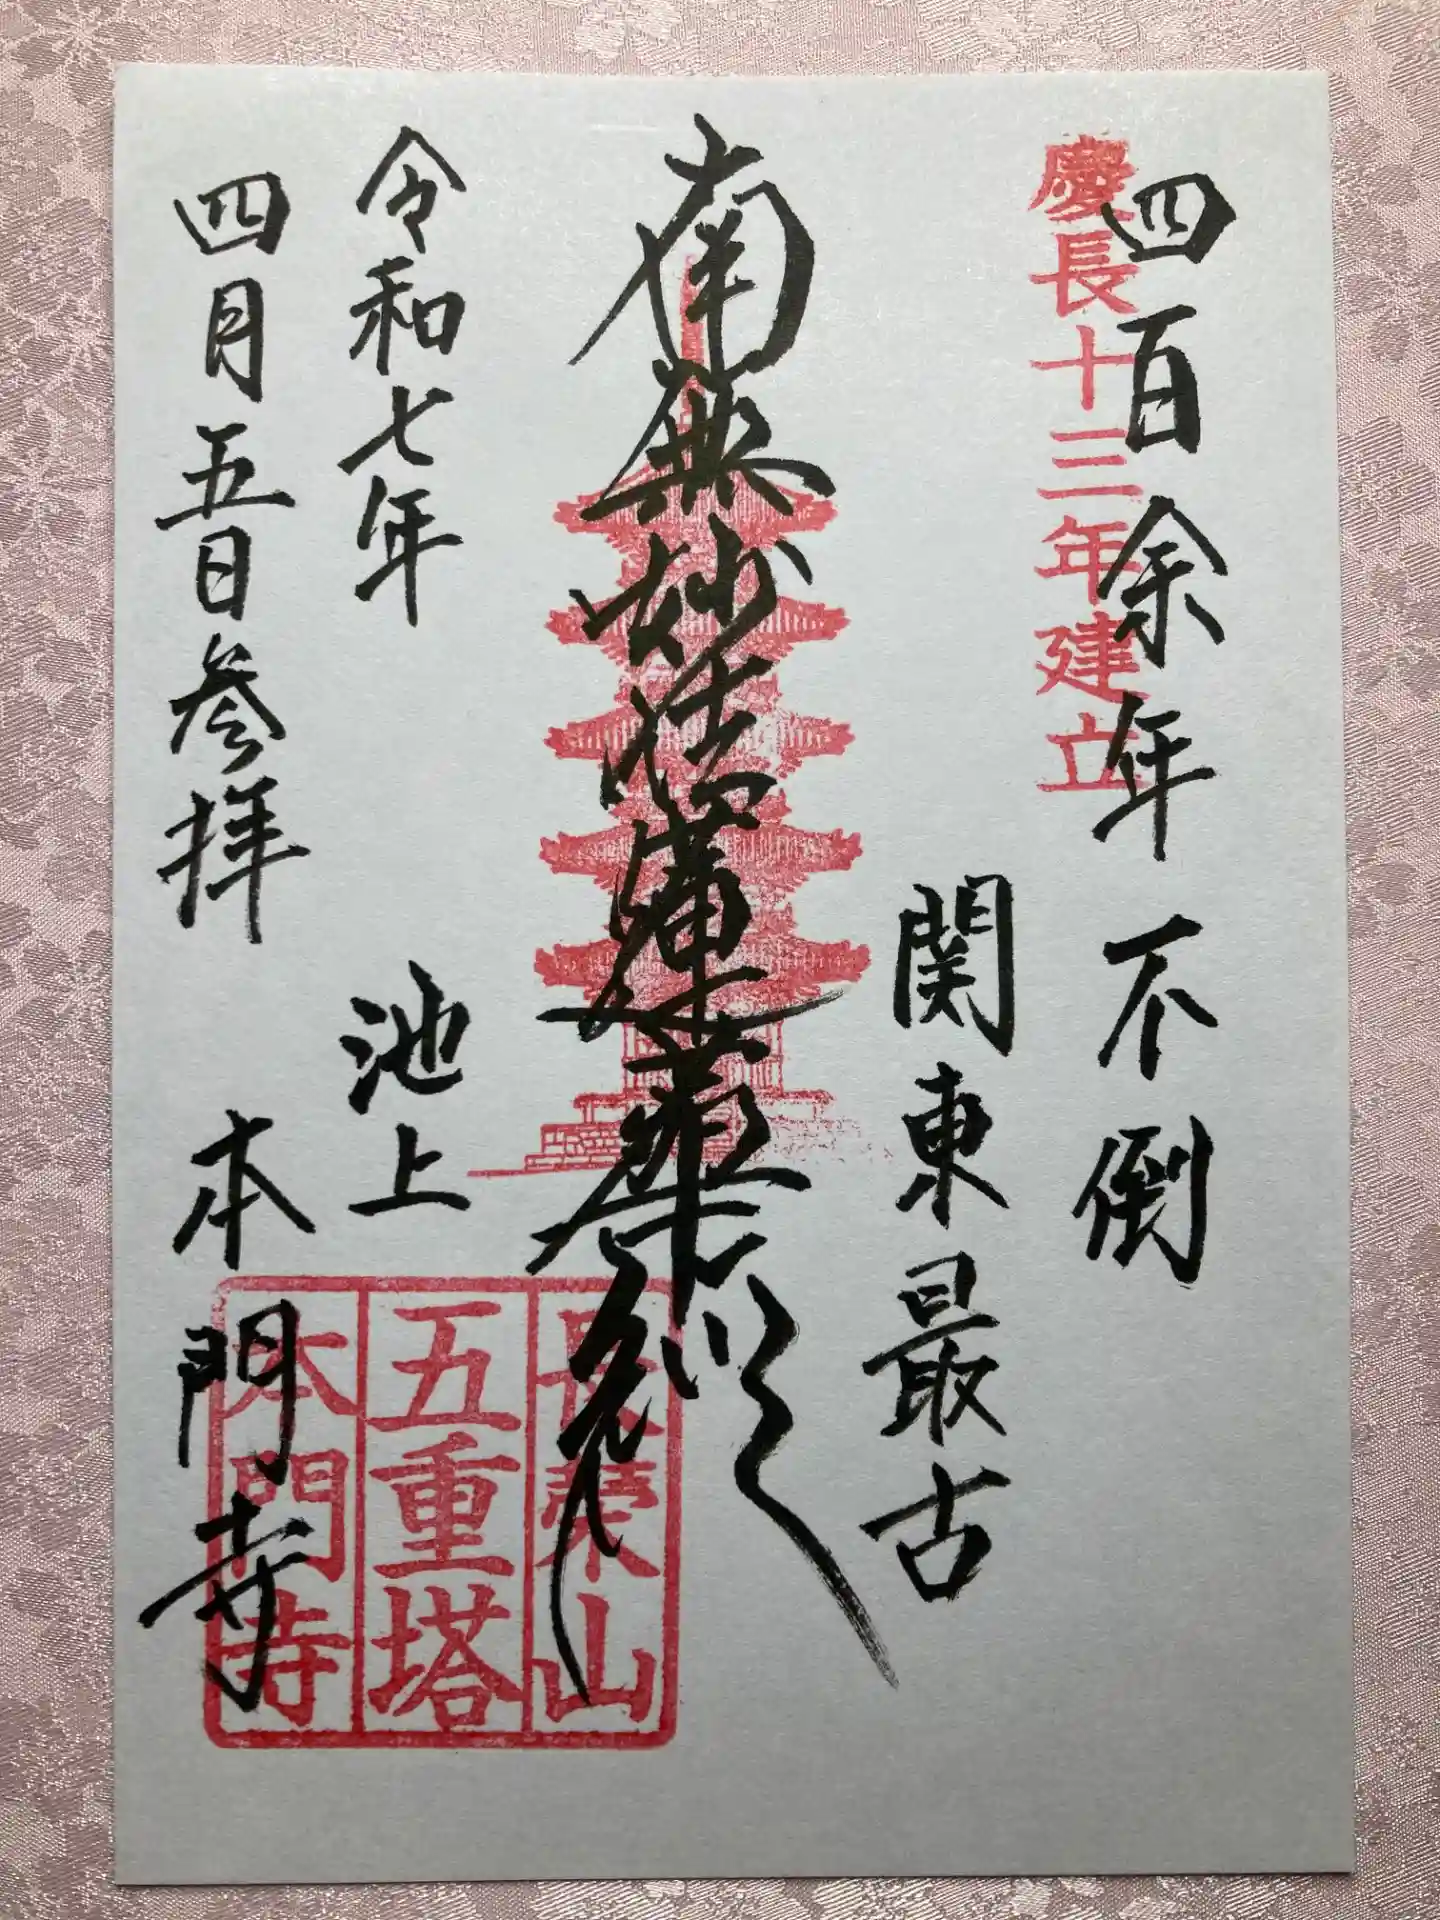 慶長十三年建立
四百余年不倒
関東最古
南無妙法蓮華経
令和七年
池上
四月五日参拝
本門寺
長栄山
五重塔
本門寺